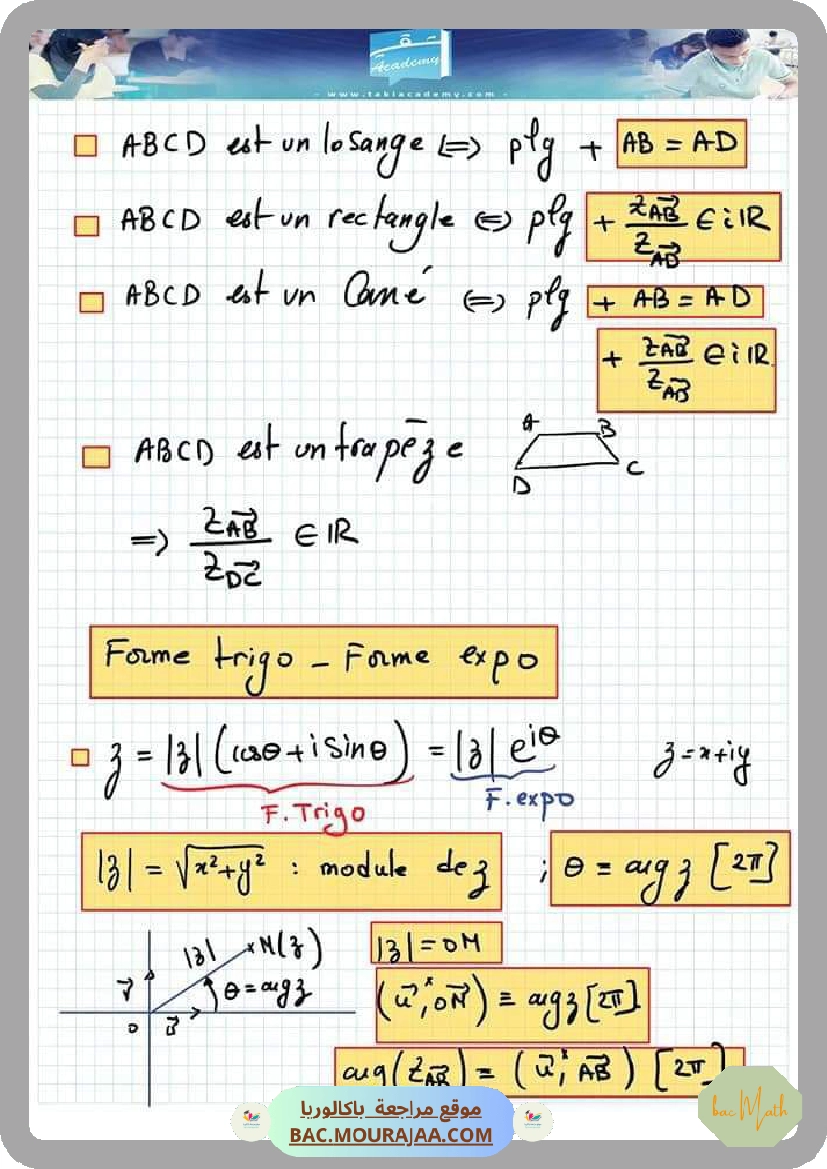 Academy
- www.takiacademy.com -
ABCD est un losange ⇔ plg + AB = AD
ABCD est un rectangle ⇔ plg + Z_AB⃗ / Z_AD⃗ ∈ iIR
ABCD est un Carré ⇔ plg + AB = AD
+ Z_AB⃗ / Z_AD⃗ ∈ iIR
ABCD est un trapèze
A B
D C
⇒ Z_AB⃗ / Z_DC⃗ ∈ IR
Forme trigo - Forme expo
z = |z| (cosθ + i sinθ) = |z| e^{iθ} z = x+iy
F. Trigo F. expo
|z| = √x²+y² : module de z ; θ ≡ arg z [2π]
|z| ×M(z) |z| = OM
v⃗ θ = arg z (u⃗, OM⃗) ≡ arg z [2π]
O u⃗
arg(Z_AB⃗) ≡ (u⃗, AB⃗) [2π]
موقع مراجعة باكالوريا
BAC.MOURAJAA.COM
bac Math